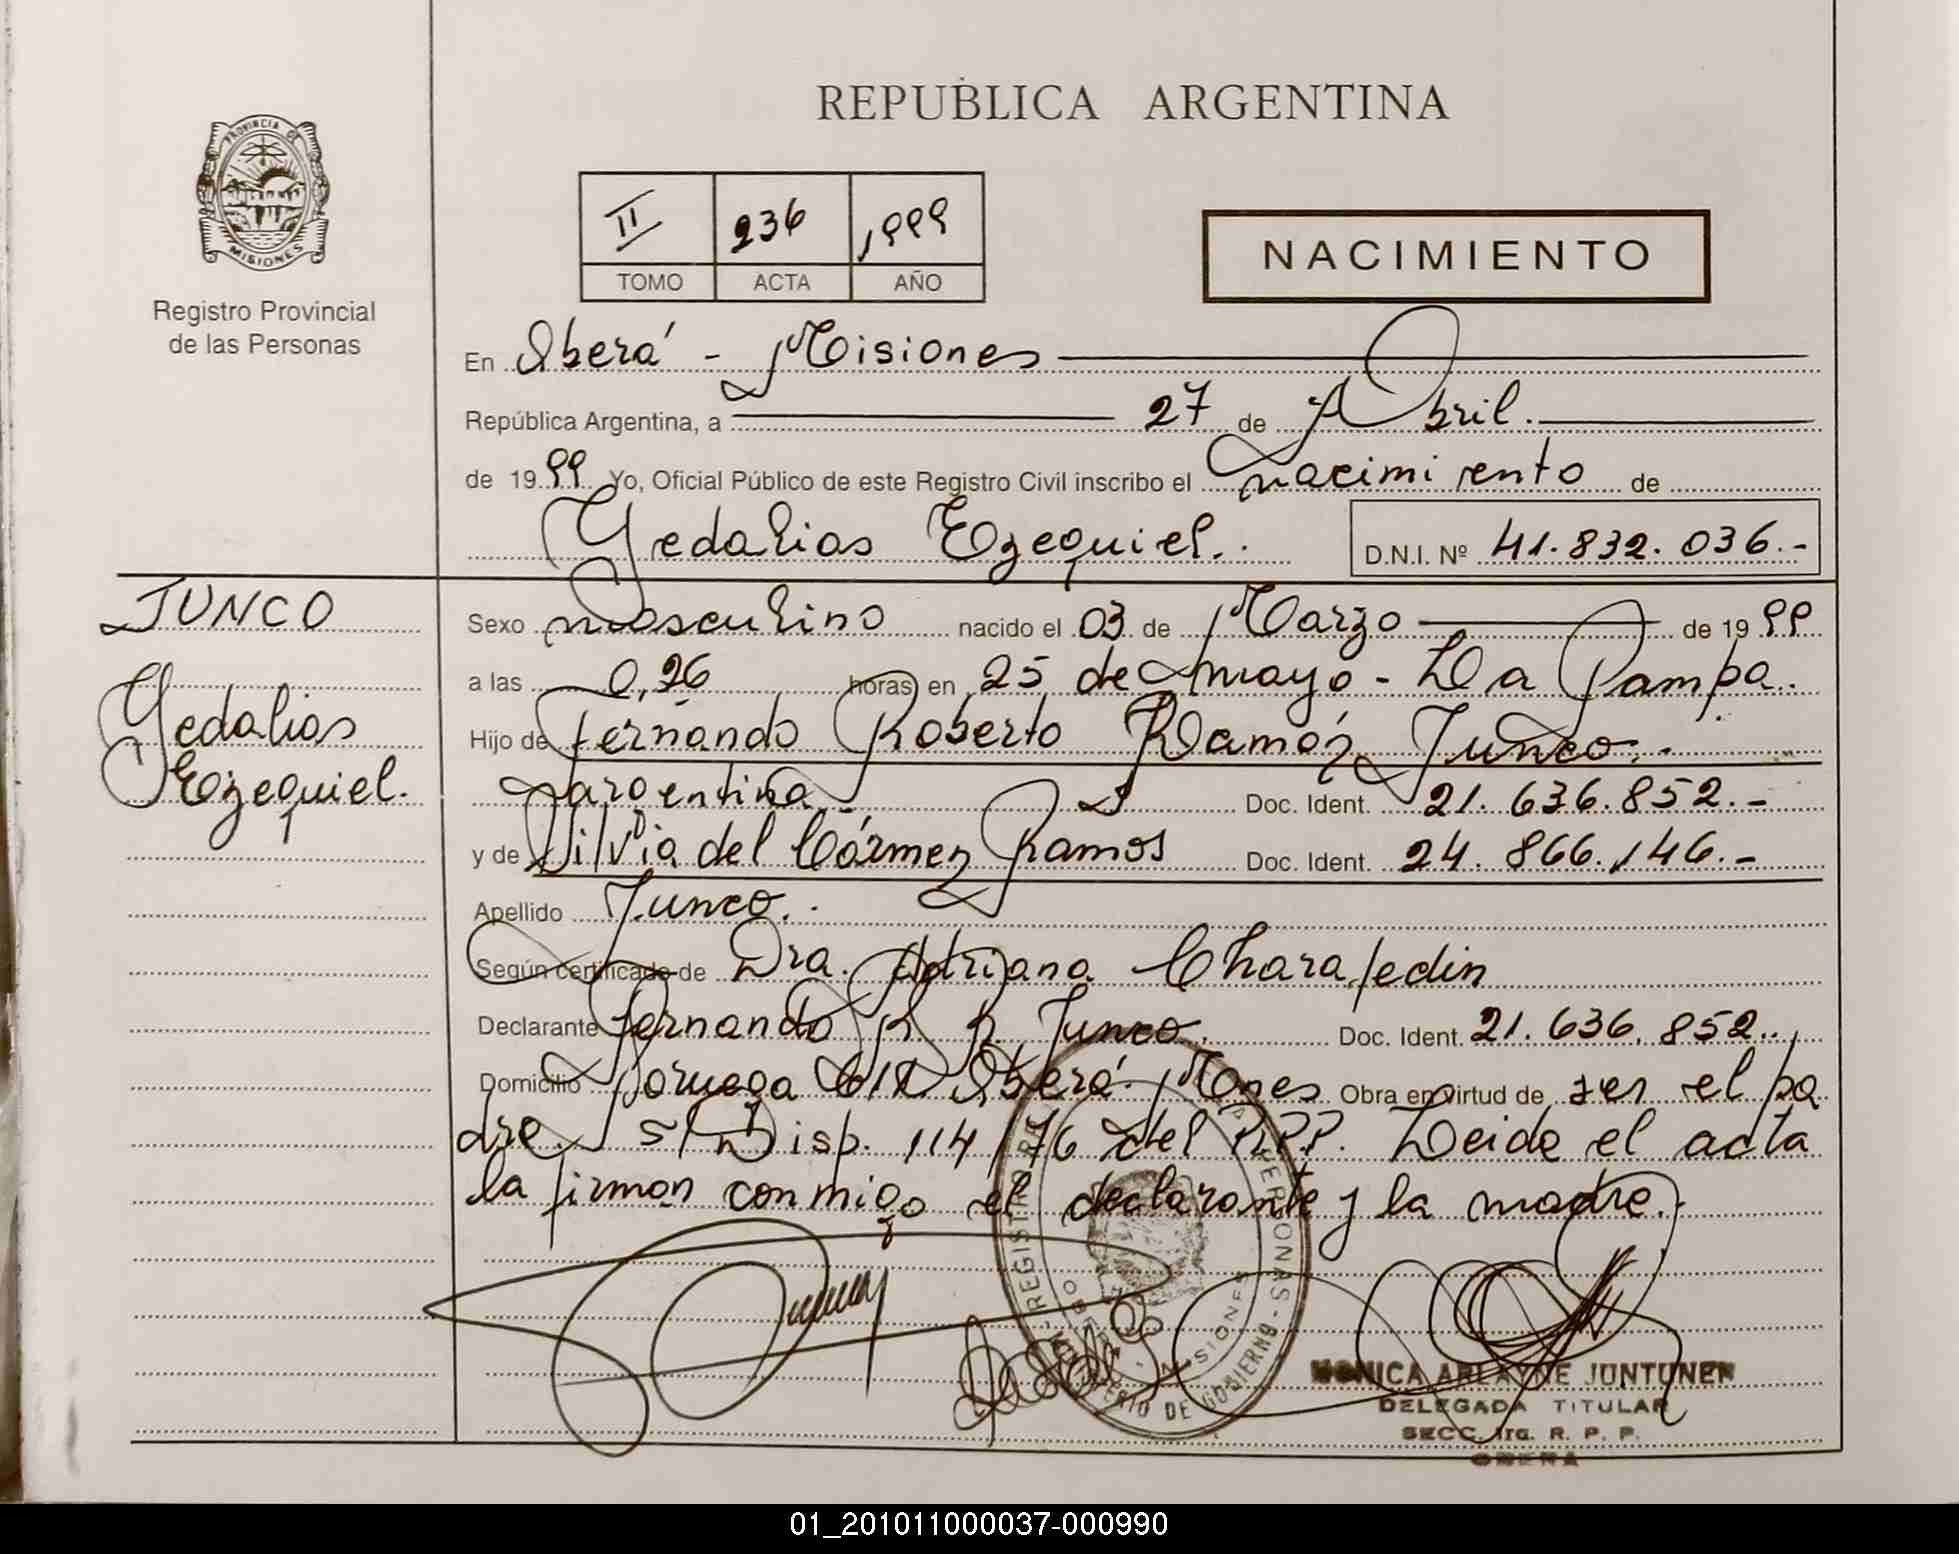 REPUBLICA ARGENTINA
PROVINCIA DE MISIONES
Registro Provincial
de las Personas
II 236 1999
TOMO ACTA AÑO
NACIMIENTO
En Oberá - Misiones
República Argentina, a 27 de Abril.
de 1999 Yo, Oficial Público de este Registro Civil inscribo el nacimiento de
Gedalias Ezequiel. D.N.I. Nº 41.832.036.-
JUNCO
Gedalias
Ezequiel.
Sexo masculino nacido el 03 de Marzo de 1999
a las 0,26 horas en 25 de mayo - La Pampa.
Hijo de Fernando Roberto Ramón Junco.
argentina Doc. Ident. 21.636.852.-
y de Silvia del Cármen Ramos Doc. Ident. 24.866.146.-
Apellido Junco.
Según certificado de Dra. Adriana Charafedin
Declarante Fernando R. R. Junco. Doc. Ident. 21.636.852.
Domicilio Noruega Oberá Mnes Obra en virtud de ser el pa
dre. S/ Disp. 114/76 del R.P.P. Leida el acta
la firman conmigo el declarante y la madre.
MONICA ARLAYNE JUNTUNEN
DELEGADA TITULAR
SECC. 1ra. R. P. P.
OBERA
01_201011000037-000990